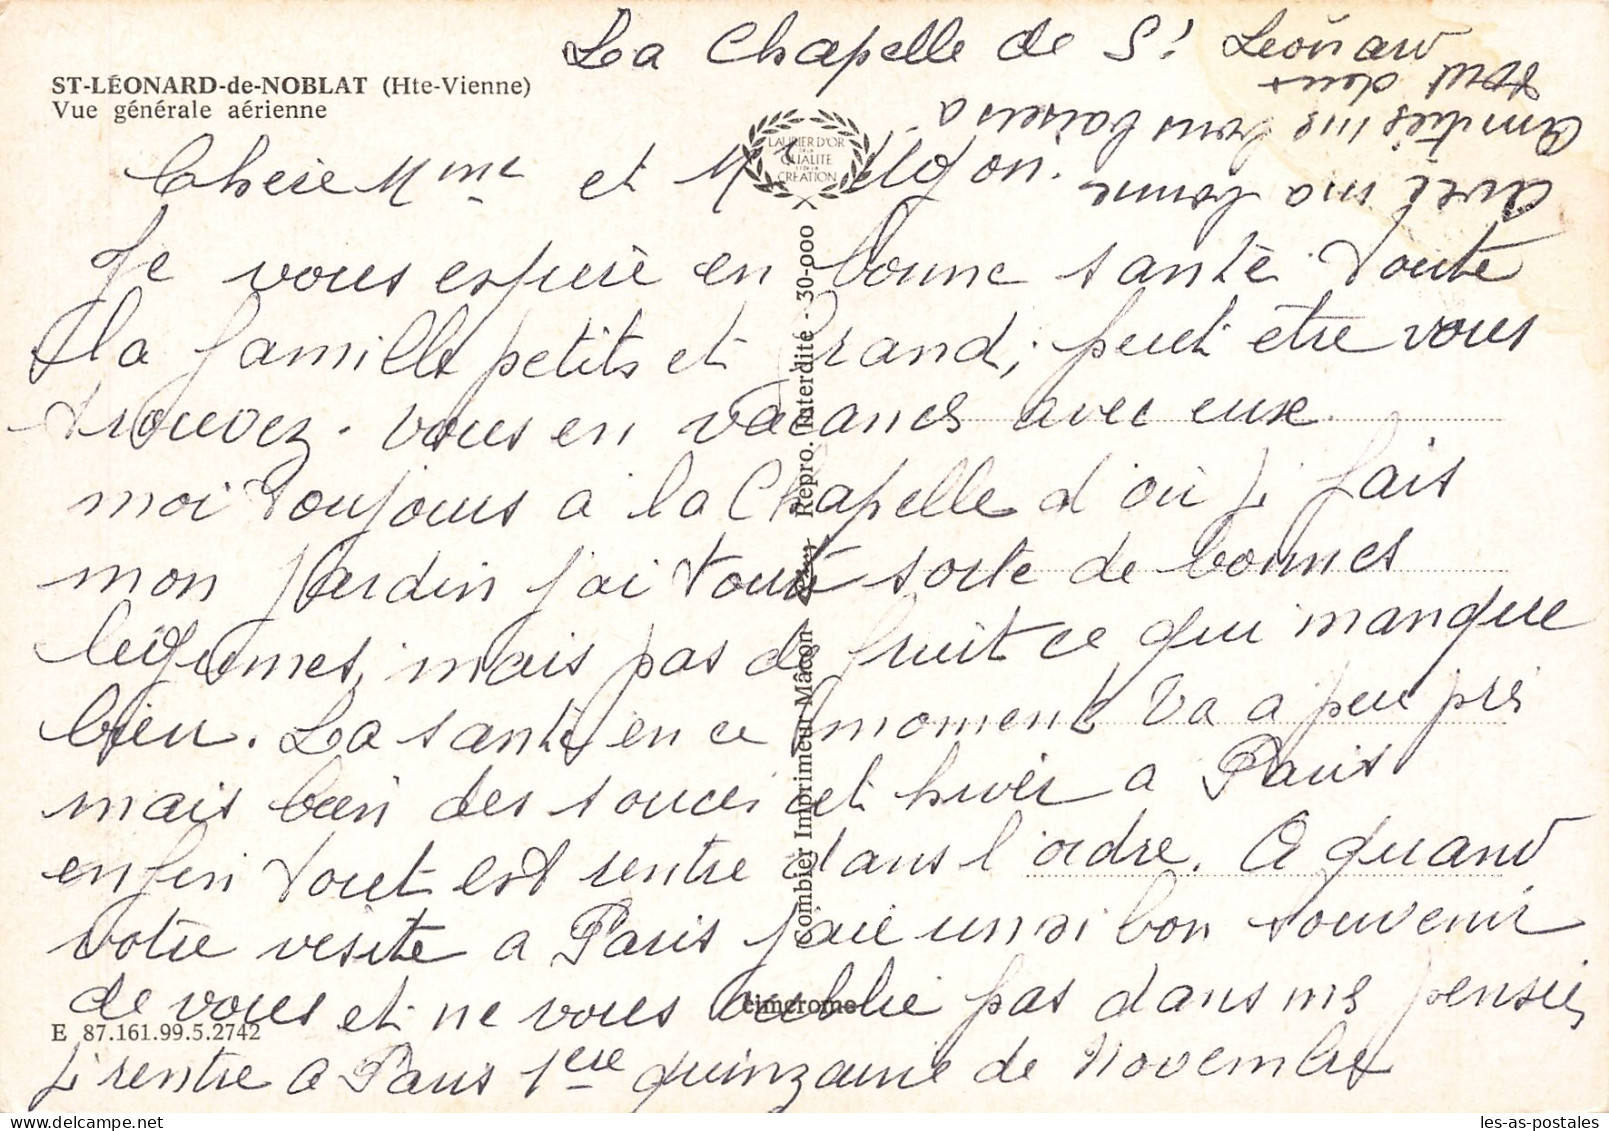 La Chapelle de St Léonard
ST-LÉONARD-de-NOBLAT (Hte-Vienne)
Vue générale aérienne
LAURIER D'OR
DE LA
QUALITE
ET DE LA
CREATION
Chère Mme et Mr
Je vous espère en bonne santè toute
la famille petits et Grand, peut etre vous
trouvez-vous en vacances avec eux.
moi toujours a la Chapelle d'où je fais
mon jardin j'ai toute sorte de bonnes
legumes, mais pas de fruit ce qui manque
bien. La santé en ce moment va a peu près
mais bien des soucis cet hiver a Paris
enfin tout est rentre dans l'ordre. A quand
votre visite a Paris j'aie un si bon souvenir
de vous et ne vous oublie pas dans mes pensées
je rentre a Paris 1ere quinzaine de Novembre
avec ma bonne
Amitiés mes bons baisers a
tout deux
Combier Imprimeur Mâcon Repro. Interdite - 30-000
cimcrome
E 87.161.99.5.2742
les-as-postales